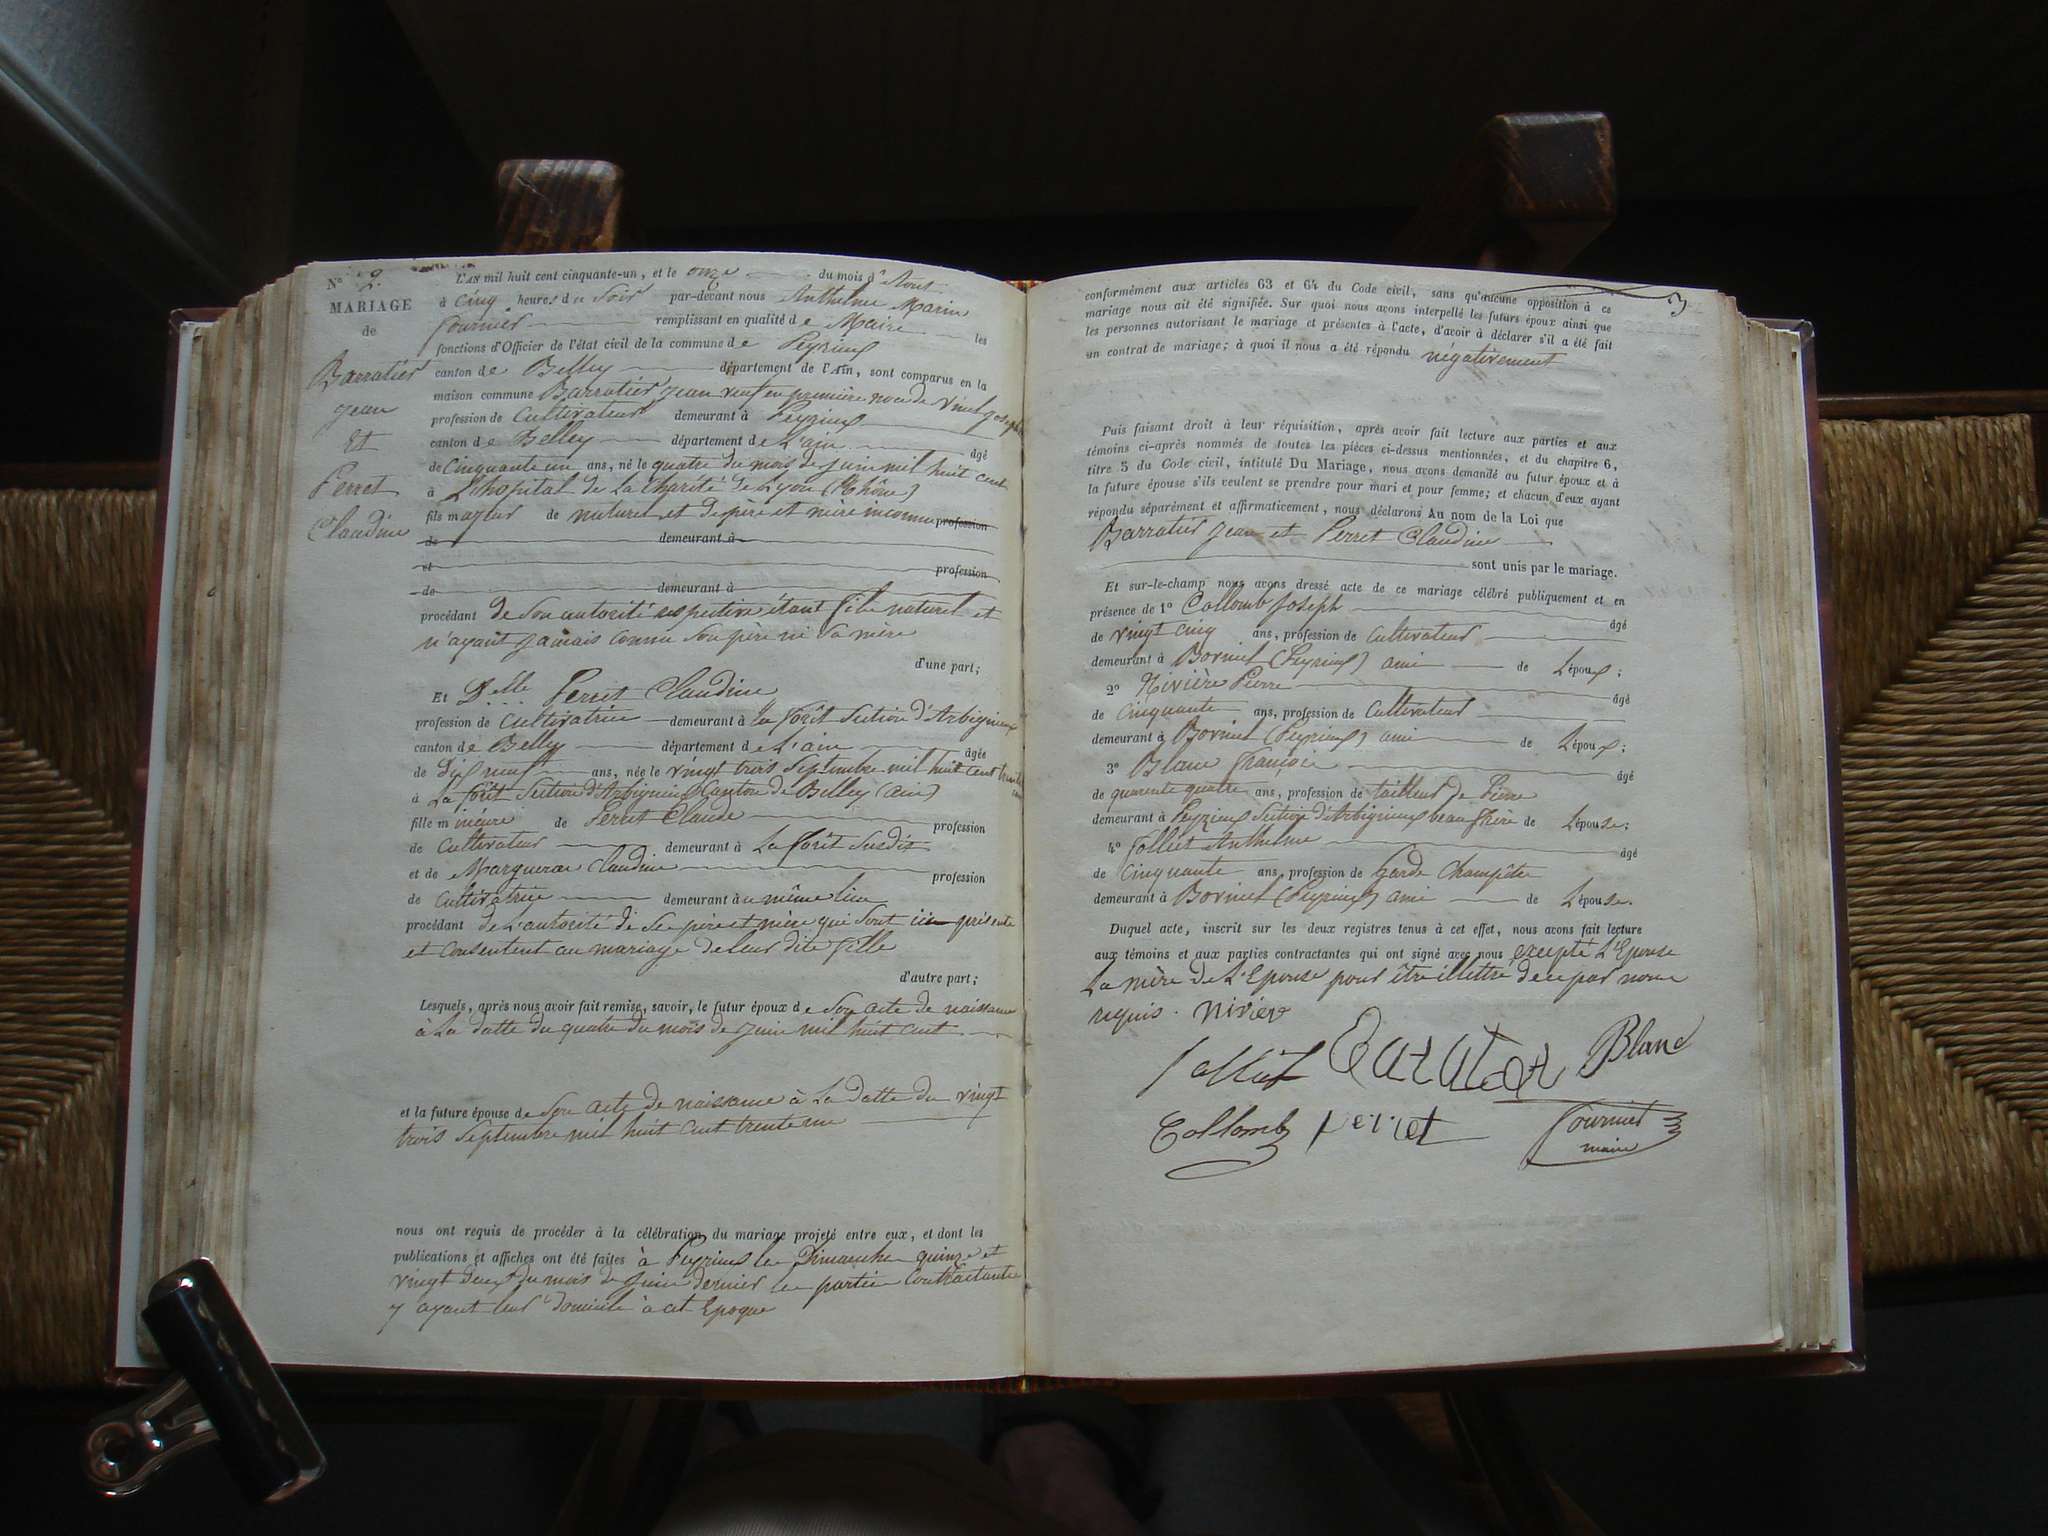 N° 2.
MARIAGE
de
Barratier
Jean
Et
Perret
Claudine
L'AN mil huit cent cinquante-un, et le onze du mois d'Aout
à cinq heures du Soir par-devant nous Anthelme Marin
Fournier remplissant en qualité de Maire les
fonctions d'Officier de l'état civil de la commune de Peyrieux
canton de Belley département de l'Ain, sont comparus en la
maison commune Barratier Jean veuf en première noce de Vinet Joseph
profession de Cultivateur demeurant à Peyrieux
canton de Belley département de L'ain âgé
de Cinquante un ans, né le quatre du mois de Juin mil huit cent
à L'hopital de La Charité de Lyon (Rhône)
fils majeur de naturel et de père et mère inconnu profession
de demeurant à
et profession
de demeurant à
procédant de son autorité respective étant fils naturel et
n'ayant jamais connu son père ni sa mère
d'une part;
Et Delle Perret Claudine
profession de Cultivatrice demeurant à La forêt Section d'Arbignieux
canton de Belley département de L'ain âgée
de Dix neuf ans, née le vingt trois Septembre mil huit cent trente un
à La forêt Section d'Arbignieux Canton de Belley (ain)
fille mineure de Perret Claude profession
de Cultivateur demeurant à La forêt Susdit
et de Marguerae Claudine profession
de Cultivatrice demeurant au même lieu
procédant de L'autorité de Ses père et mère qui sont ici présents
et consentent au mariage de leur dite fille
d'autre part;
Lesquels, après nous avoir fait remise, savoir, le futur époux de Son acte de naissance
à La datte du quatre du mois de Juin mil huit cent
et la future épouse de Son acte de naissance à La datte du vingt
trois Septembre mil huit cent trente un
nous ont requis de procéder à la célébration du mariage projeté entre eux, et dont les
publications et affiches ont été faites à Peyrieux les Dimanches quinze et
vingt deux du mois de Juin dernier les parties Contractantes
y ayant leur domicile à cet Epoque
3
conformément aux articles 63 et 64 du Code civil, sans qu'aucune opposition à ce
mariage nous ait été signifiée. Sur quoi nous avons interpellé les futurs époux ainsi que
les personnes autorisant le mariage et présentes à l'acte, d'avoir à déclarer s'il a été fait
un contrat de mariage; à quoi il nous a été répondu négativement
Puis faisant droit à leur réquisition, après avoir fait lecture aux parties et aux
témoins ci-après nommés de toutes les pièces ci-dessus mentionnées, et du chapitre 6,
titre 5 du Code civil, intitulé Du Mariage, nous avons demandé au futur époux et à
la future épouse s'ils veulent se prendre pour mari et pour femme; et chacun d'eux ayant
répondu séparément et affirmativement, nous déclarons Au nom de la Loi que
Barratier Jean et Perret Claudine
sont unis par le mariage.
Et sur-le-champ nous avons dressé acte de ce mariage célébré publiquement et en
présence de 1° Collomb Joseph âgé
de vingt cinq ans, profession de Cultivateur
demeurant à Borinet (Peyrieux) ami de L'époux;
2° Nivière Pierre âgé
de cinquante ans, profession de Cultivateur
demeurant à Borinet (Peyrieux) ami de L'époux;
3° Blanc François âgé
de quarente quatre ans, profession de tailleur de Pierre
demeurant à Peyzieux Section d'Arbignieux beau frère de L'épouse;
4° Folliet Anthelme âgé
de Cinquante ans, profession de Garde Champêtre
demeurant à Borinet (Peyrieux) ami de L'épouse.
Duquel acte, inscrit sur les deux registres tenus à cet effet, nous avons fait lecture
aux témoins et aux parties contractantes qui ont signé avec nous excepté L'Epouse
La mère de L'Epouse pour être illettré de ce par nous
requis. Nivier
folliet Baratier Blanc
Collomb perret Fournier
maire